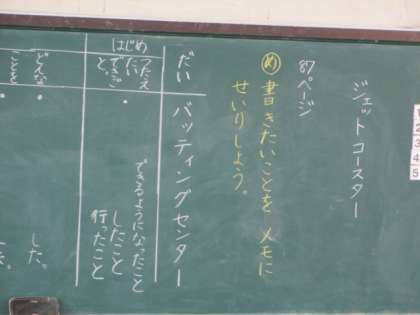 ジェットコースター
87ページ
め 書きたいことを メモに
せいりしよう。
だい
バッティングセンター
はじめ
つたえ
たい
できご
と。
・
できるようになったこと
したこと
行ったこと
どんな
ことを
・
した。
・
した。
1
2
3
4
5